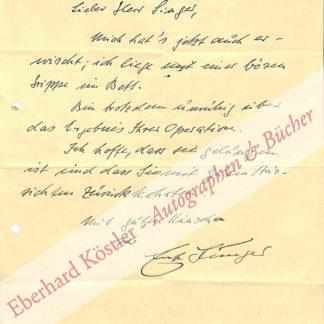 Lieber Herr Singer,
Mich hat's jetzt auch er-
wischt; ich liege mit einer bösen
Grippe im Bett.
Bin trotzdem unruhig über
das Ergebnis Ihrer Operation.
Ich hoffe, dass sie gelungen
ist und dass Sie mit
sicht zurückkehrten.
Mit guten Wünschen
Ihr
Eberhard Köstler - Autographen & Bücher